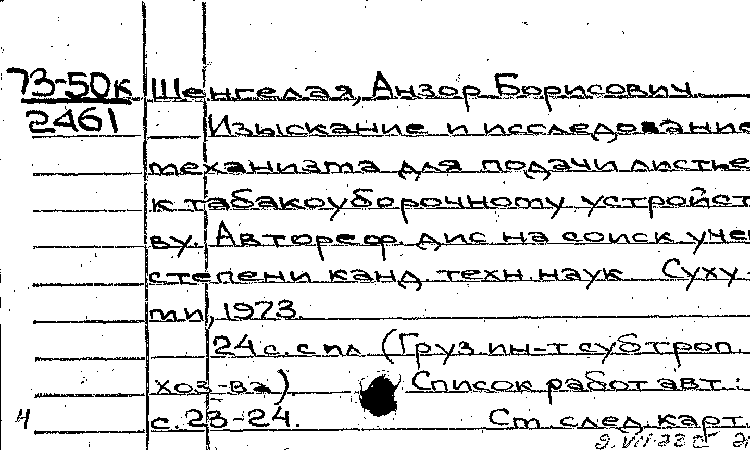 73-50к Шенгелая, Анзор Борисович.
2461 Изыскание и исследование
механизма для подачи листье
к табакоуборочному устройст
ву. Автореф. дис на соиск учен
степени канд. техн. наук Суху-
ми, 1973.
24 с. с ил (Груз. ин-т субтроп.
хоз-ва). Список работ авт.:
4 с. 23-24. См след. карт.